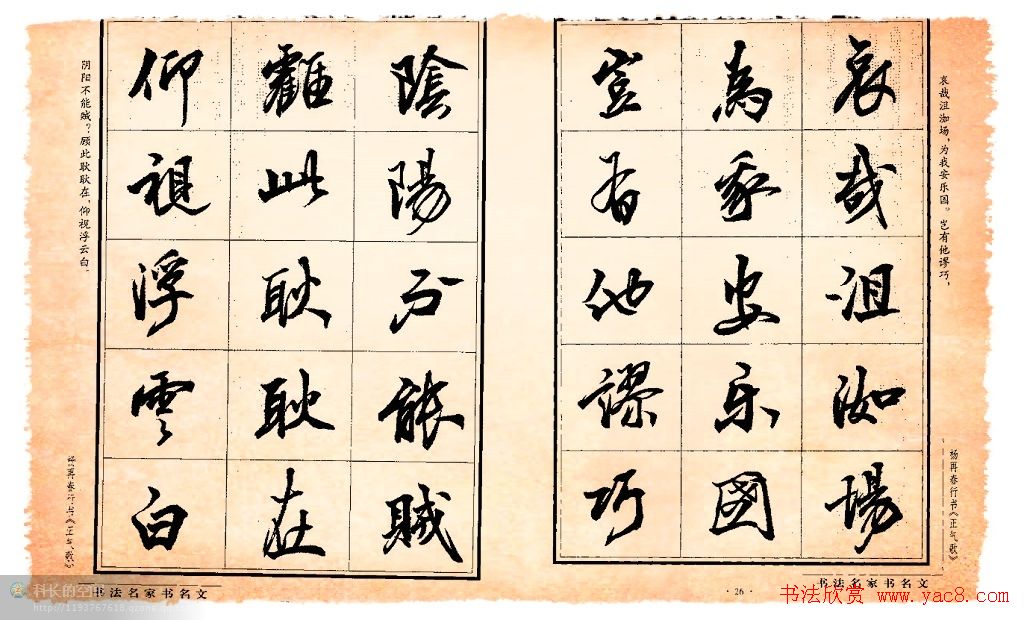 哀哉沮洳場
為我安乐國
豈有他謬巧
陰陽不能賊
顧此耿耿在
仰視浮雲白
哀哉沮洳场，为我安乐国。岂有他谬巧，
杨再春行书《正气歌》
阴阳不能贼？顾此耿耿在，仰视浮云白。
杨再春行书《正气歌》
书法名家书名文
·26·
书法名家书名文
科长的空
书法欣赏 www.yac8.com